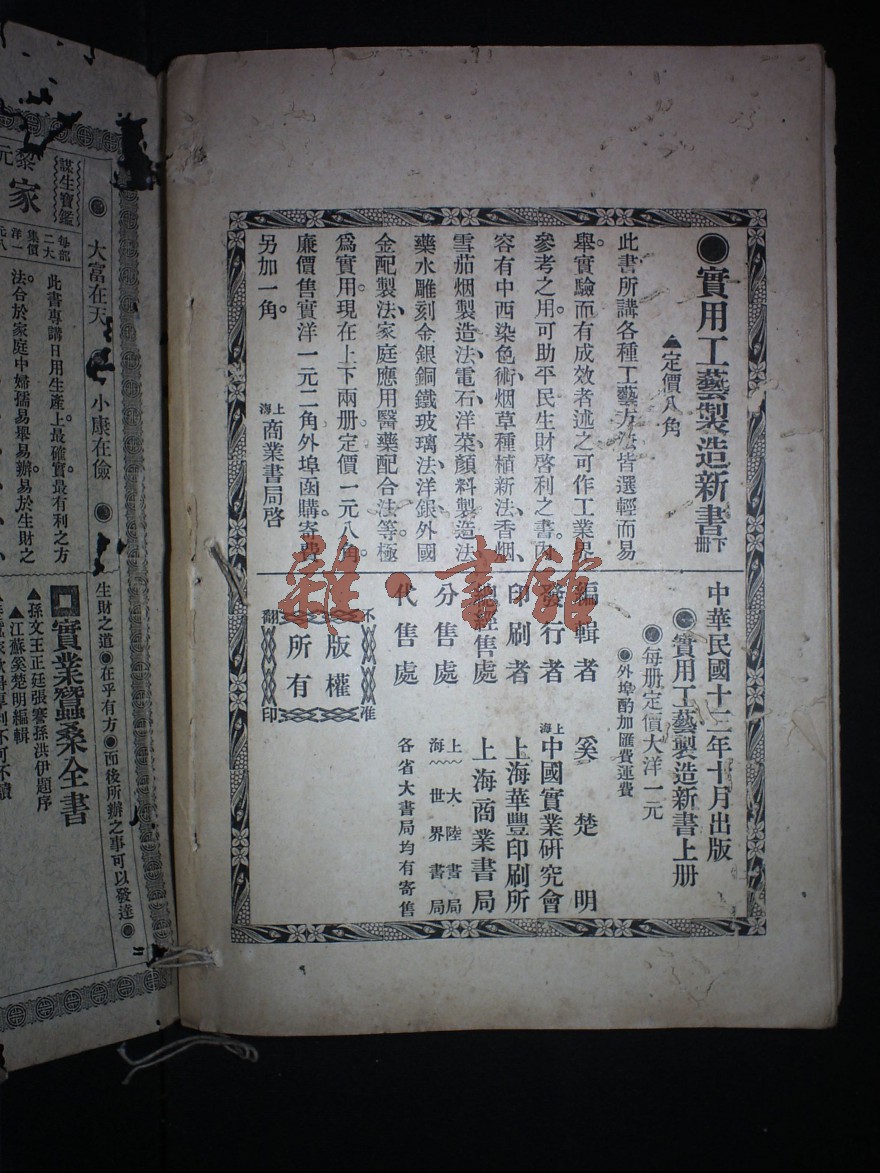 ●實用工藝製造新書下册
▲定價八角
此書所講各種工藝方法皆選輕而易
舉實驗而有成效者述之可作工業界
參考之用可助平民生財啓利之書。内
容有中西染色術、烟草種植新法、香烟
雪茄烟製造法、電石洋菜顔料製造法
藥水雕刻金銀銅鐵玻璃法、洋銀外國
金配製法、家庭應用醫藥配合法等。極
爲實用。現在上下兩册定價一元八角。
廉價售實洋一元二角外埠函購寄費
另加一角。
上海商業書局啓
中華民國十二年十月出版
●實用工藝製造新書上册
●每册定價大洋一元
●外埠酌加匯費運費
編輯者 奚楚明
發行者 上海中國實業研究會
印刷者 上海華豐印刷所
總經售處 上海商業書局
分售處 上海 大陸書局 世界書局
代售處 各省大書局均有寄售
版權所有
不准翻印
●生財之道●在乎有方●而後所辦之事可以發達●
●大富在天
小康在儉●
謀生寶鑑
家
每部二大集價洋一元八
此書專講日用生產上最確實最有利之方
法。合於家庭中婦孺易舉易辦。易於生財之
實業蠶桑全書
▲孫文王正廷張謇孫洪伊題序
▲江蘇奚楚明編輯
雜·書館